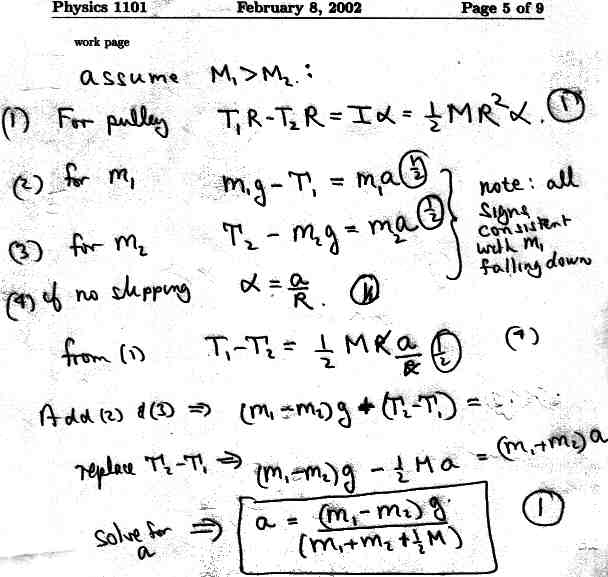 Physics 1101 February 8, 2002 Page 5 of 9
work page
assume M₁>M₂ :
(1) For pulley T₁R-T₂R = Iα = ½MR²α. ①
(2) for m₁ m₁g - T₁ = m₁a ½
(3) for m₂ T₂ - m₂g = m₂a ½
note: all
signs
consistent
with m₁
falling down
(4) if no slipping α = a/R.
from (1) T₁-T₂ = ½ MR a/R ½ (4)
Add (2) & (3) ⇒ (m₁-m₂)g + (T₂-T₁) =
replace T₂-T₁ ⇒ (m₁-m₂)g - ½Ma = (m₁+m₂)a
solve for a ⇒ a = (m₁-m₂)g / (m₁+m₂+½M) ①